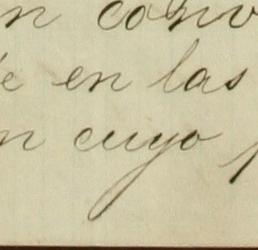 n conv
e en las
n cuyo